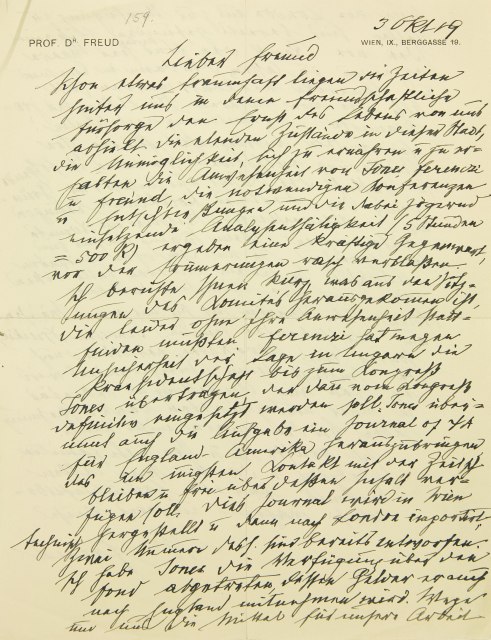 159.
3 Okt 19
PROF. DR. FREUD
WIEN, IX., BERGGASSE 19.
Lieber Freund
Schon etwas traumhaft liegen die Zeiten
hinter uns in denen freundschaftliche
Fürsorge den Ernst des Lebens von uns
abhielt. Die elenden Zustände in dieser Stadt,
die Unmöglichkeit, sich zu ernähren u zu er-
halten die Anwesenheit von Jones Ferenczi
u Freund, die notwendigen Konferenzen
u Entschließungen und die dabei zögernd
einsetzende Analysentätigkeit (5 Stunden
= 500 K) ergeben eine kräftige Gegenwart,
vor der Erinnerungen rasch verblassen.
Ich berichte Ihnen kurz was aus den Sitz-
ungen des Komites herausgekommen ist,
die leider ohne Ihre Anwesenheit statt-
finden mußten. Ferenczi hat wegen
Unsicherheit der Lage in Ungarn die
Praesidentschaft bis zum Congreß
Jones übertragen, der dann vom Congreß
definitiv eingesetzt werden soll. Jones über-
nimmt auch die Aufgabe ein Journal of ΨA
für England-Amerika herauszubringen
das im innigsten Kontakt mit der Zeitschr
bleiben u frei über dessen Inhalt ver-
fügen soll. Dies Journal wird in Wien
technisch hergestellt u dann nach London importiert,
zwei Numern des J. sind bereits entworfen.
Ich habe Jones die Verfügung über den
Fond abgetreten, dessen Gelder er auch
nach England mitnehmen wird. Wege
nur um die Mittel für unsere Arbeit